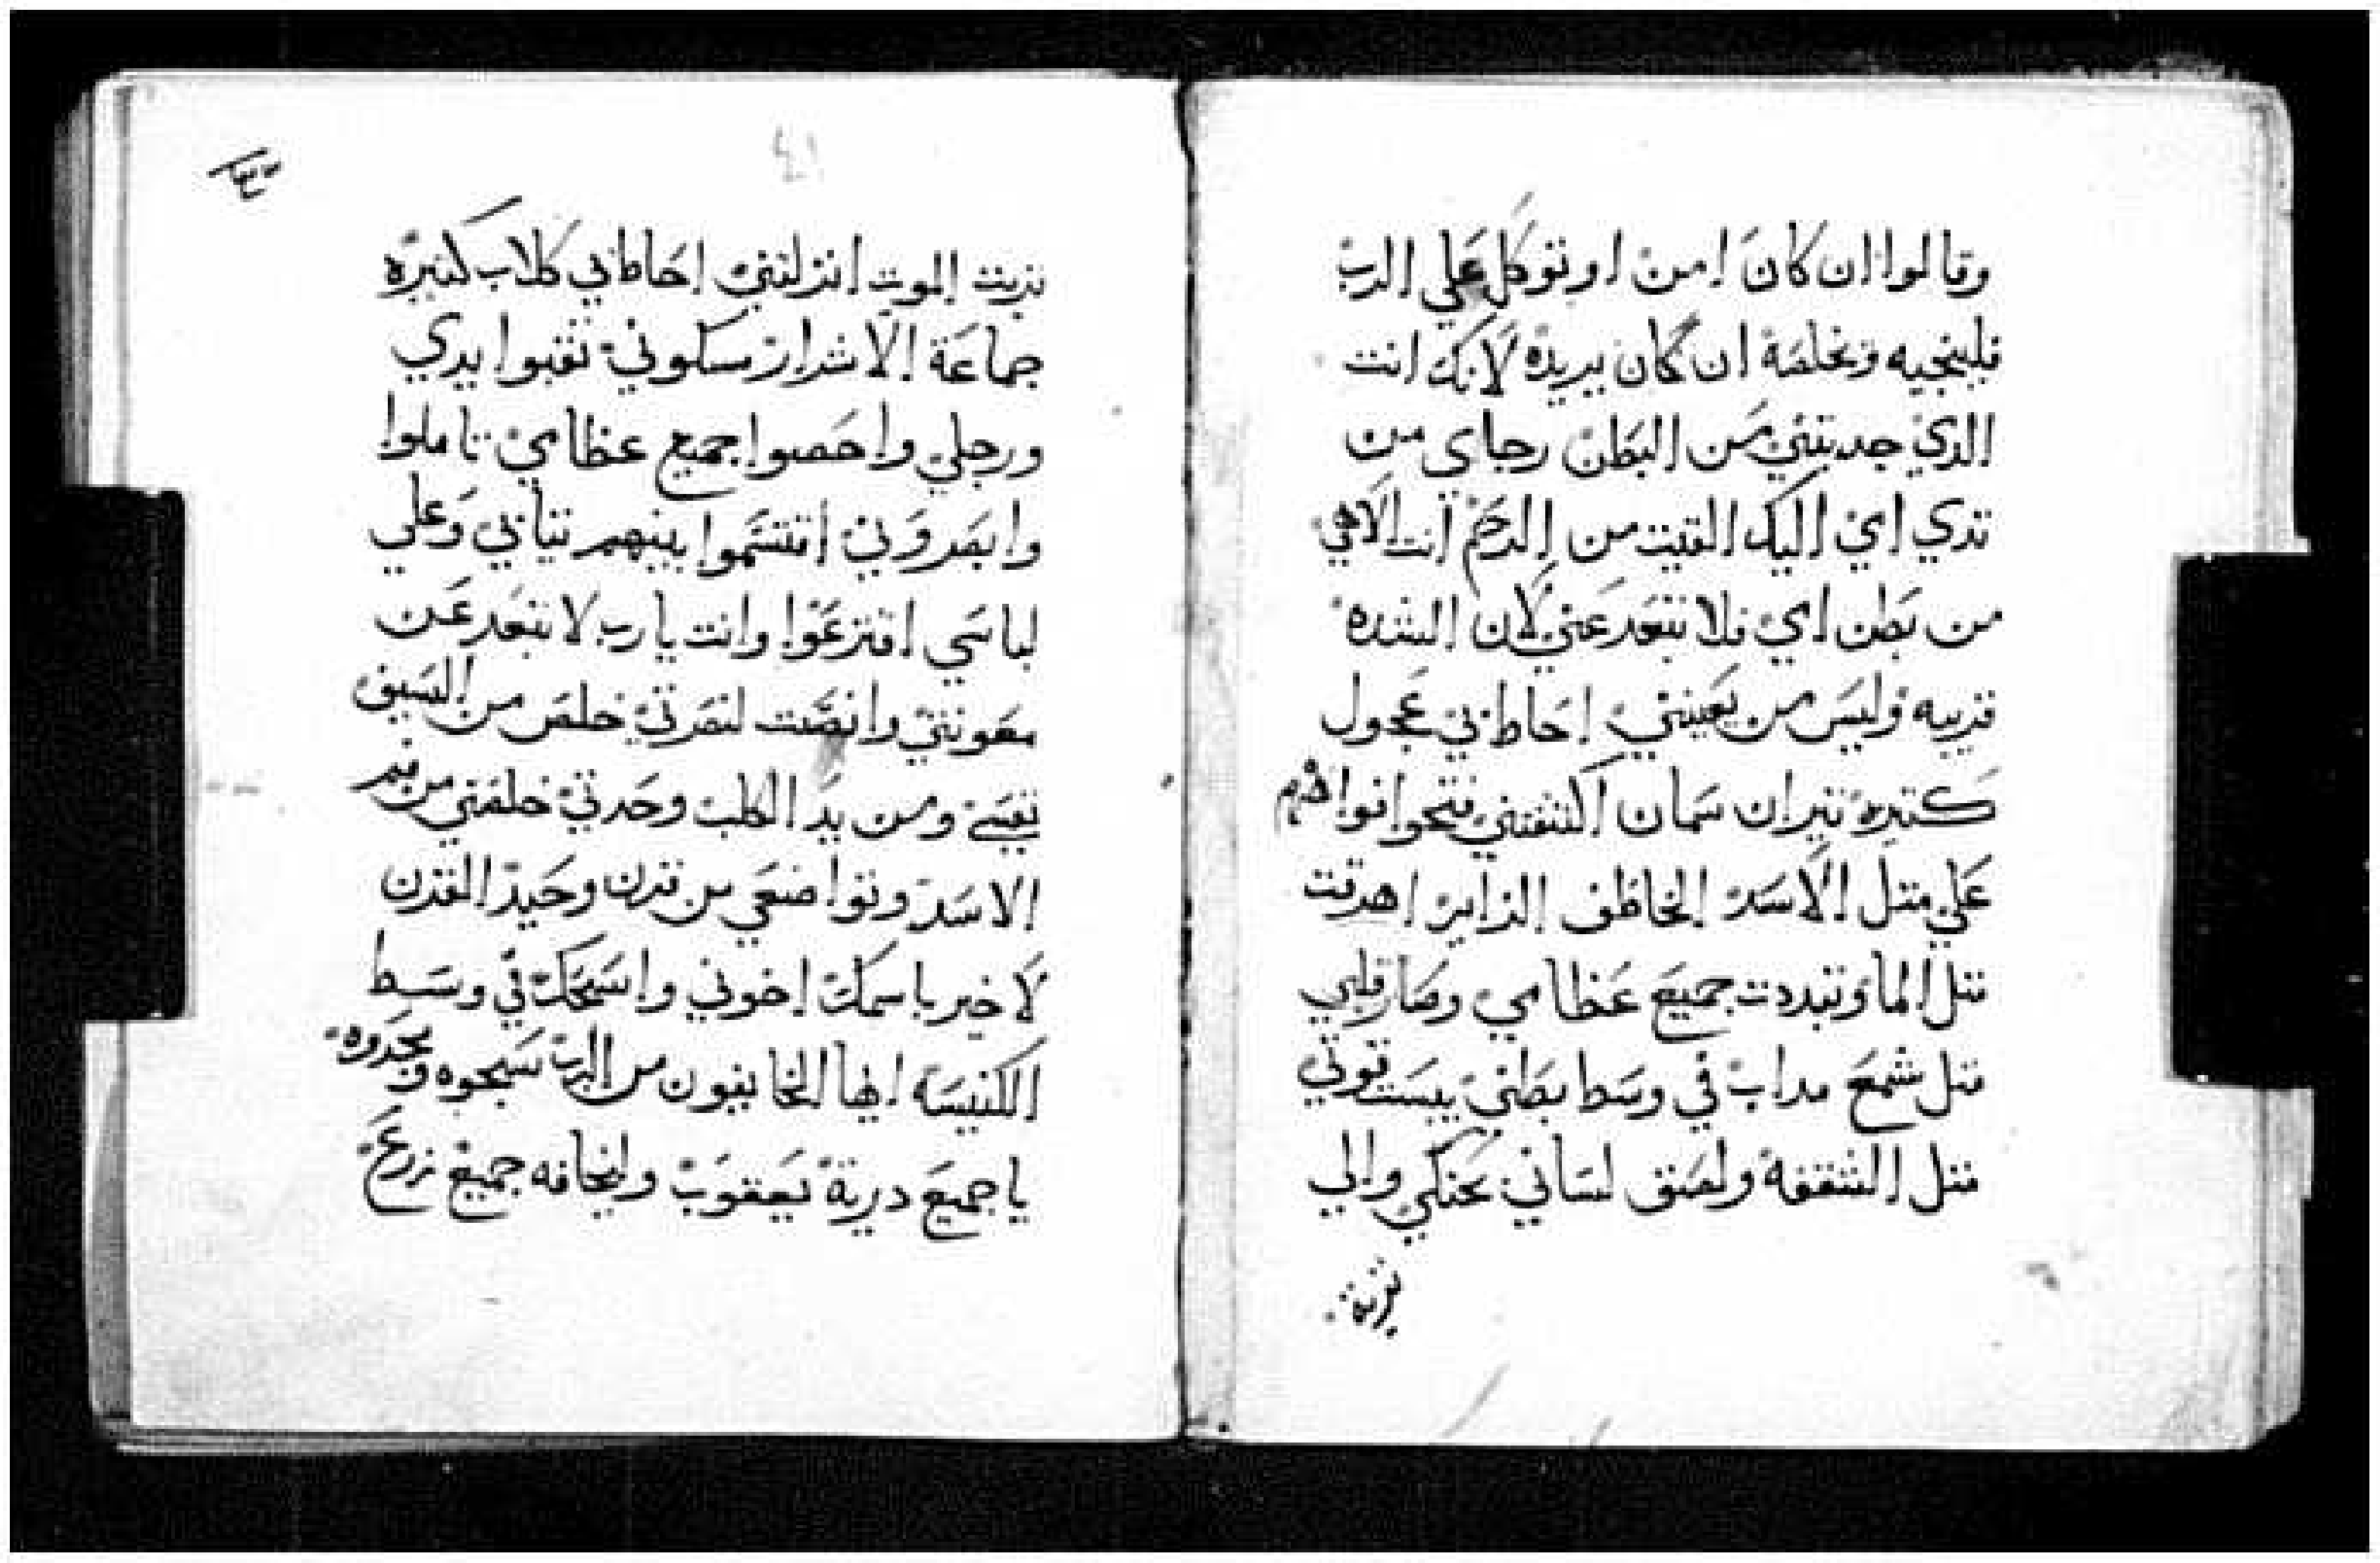 وقالوا ان كان امن اوتوكل علي الرب
فلينجيه ويخلصه ان كان يريده لانك انت
الدي جدبتني من البطن رجاي من
تدي امي اليك القيت من الرحم انت الاهي
من بطن امي فلا تبتعد عني لان الشده
قريبه وليس من يعينني احاط بي عجول
كتيره تيران سمان اكتنفتني فتحوا افواههم
علي متل الاسد الخاطف الزاير اهرقت
متل الما وتبددت جميع عظامي وصار قلبي
متل شمع مداب في وسط بطني يبست قوتي
متل الشقفه ولصق لساني بحنكي والي
تربة
تربت الموت انزلتني احاط بي كلاب كتيره
جماعة الاشرار مسكوني تقبوا يدي
ورجلي واحصوا جميع عظامي تاملوا
وابصروني اقتسموا بينهم تيابي وعلي
لباسي اقترعوا وانت يارب لا تبعد عن
معونتي وانصت لنصرتي خلص من السيف
نفسي ومن يد الكلب وحدتي خلصني من فم
الاسد وتواضعي من قرن وحيد القرن
لاخبر باسمك اخوتي واسبحك في وسط
الكنيسه ايها الخايفون من الرب سبحوه ومجدوه
يا جميع درية يعقوب وليخافه جميع زرع